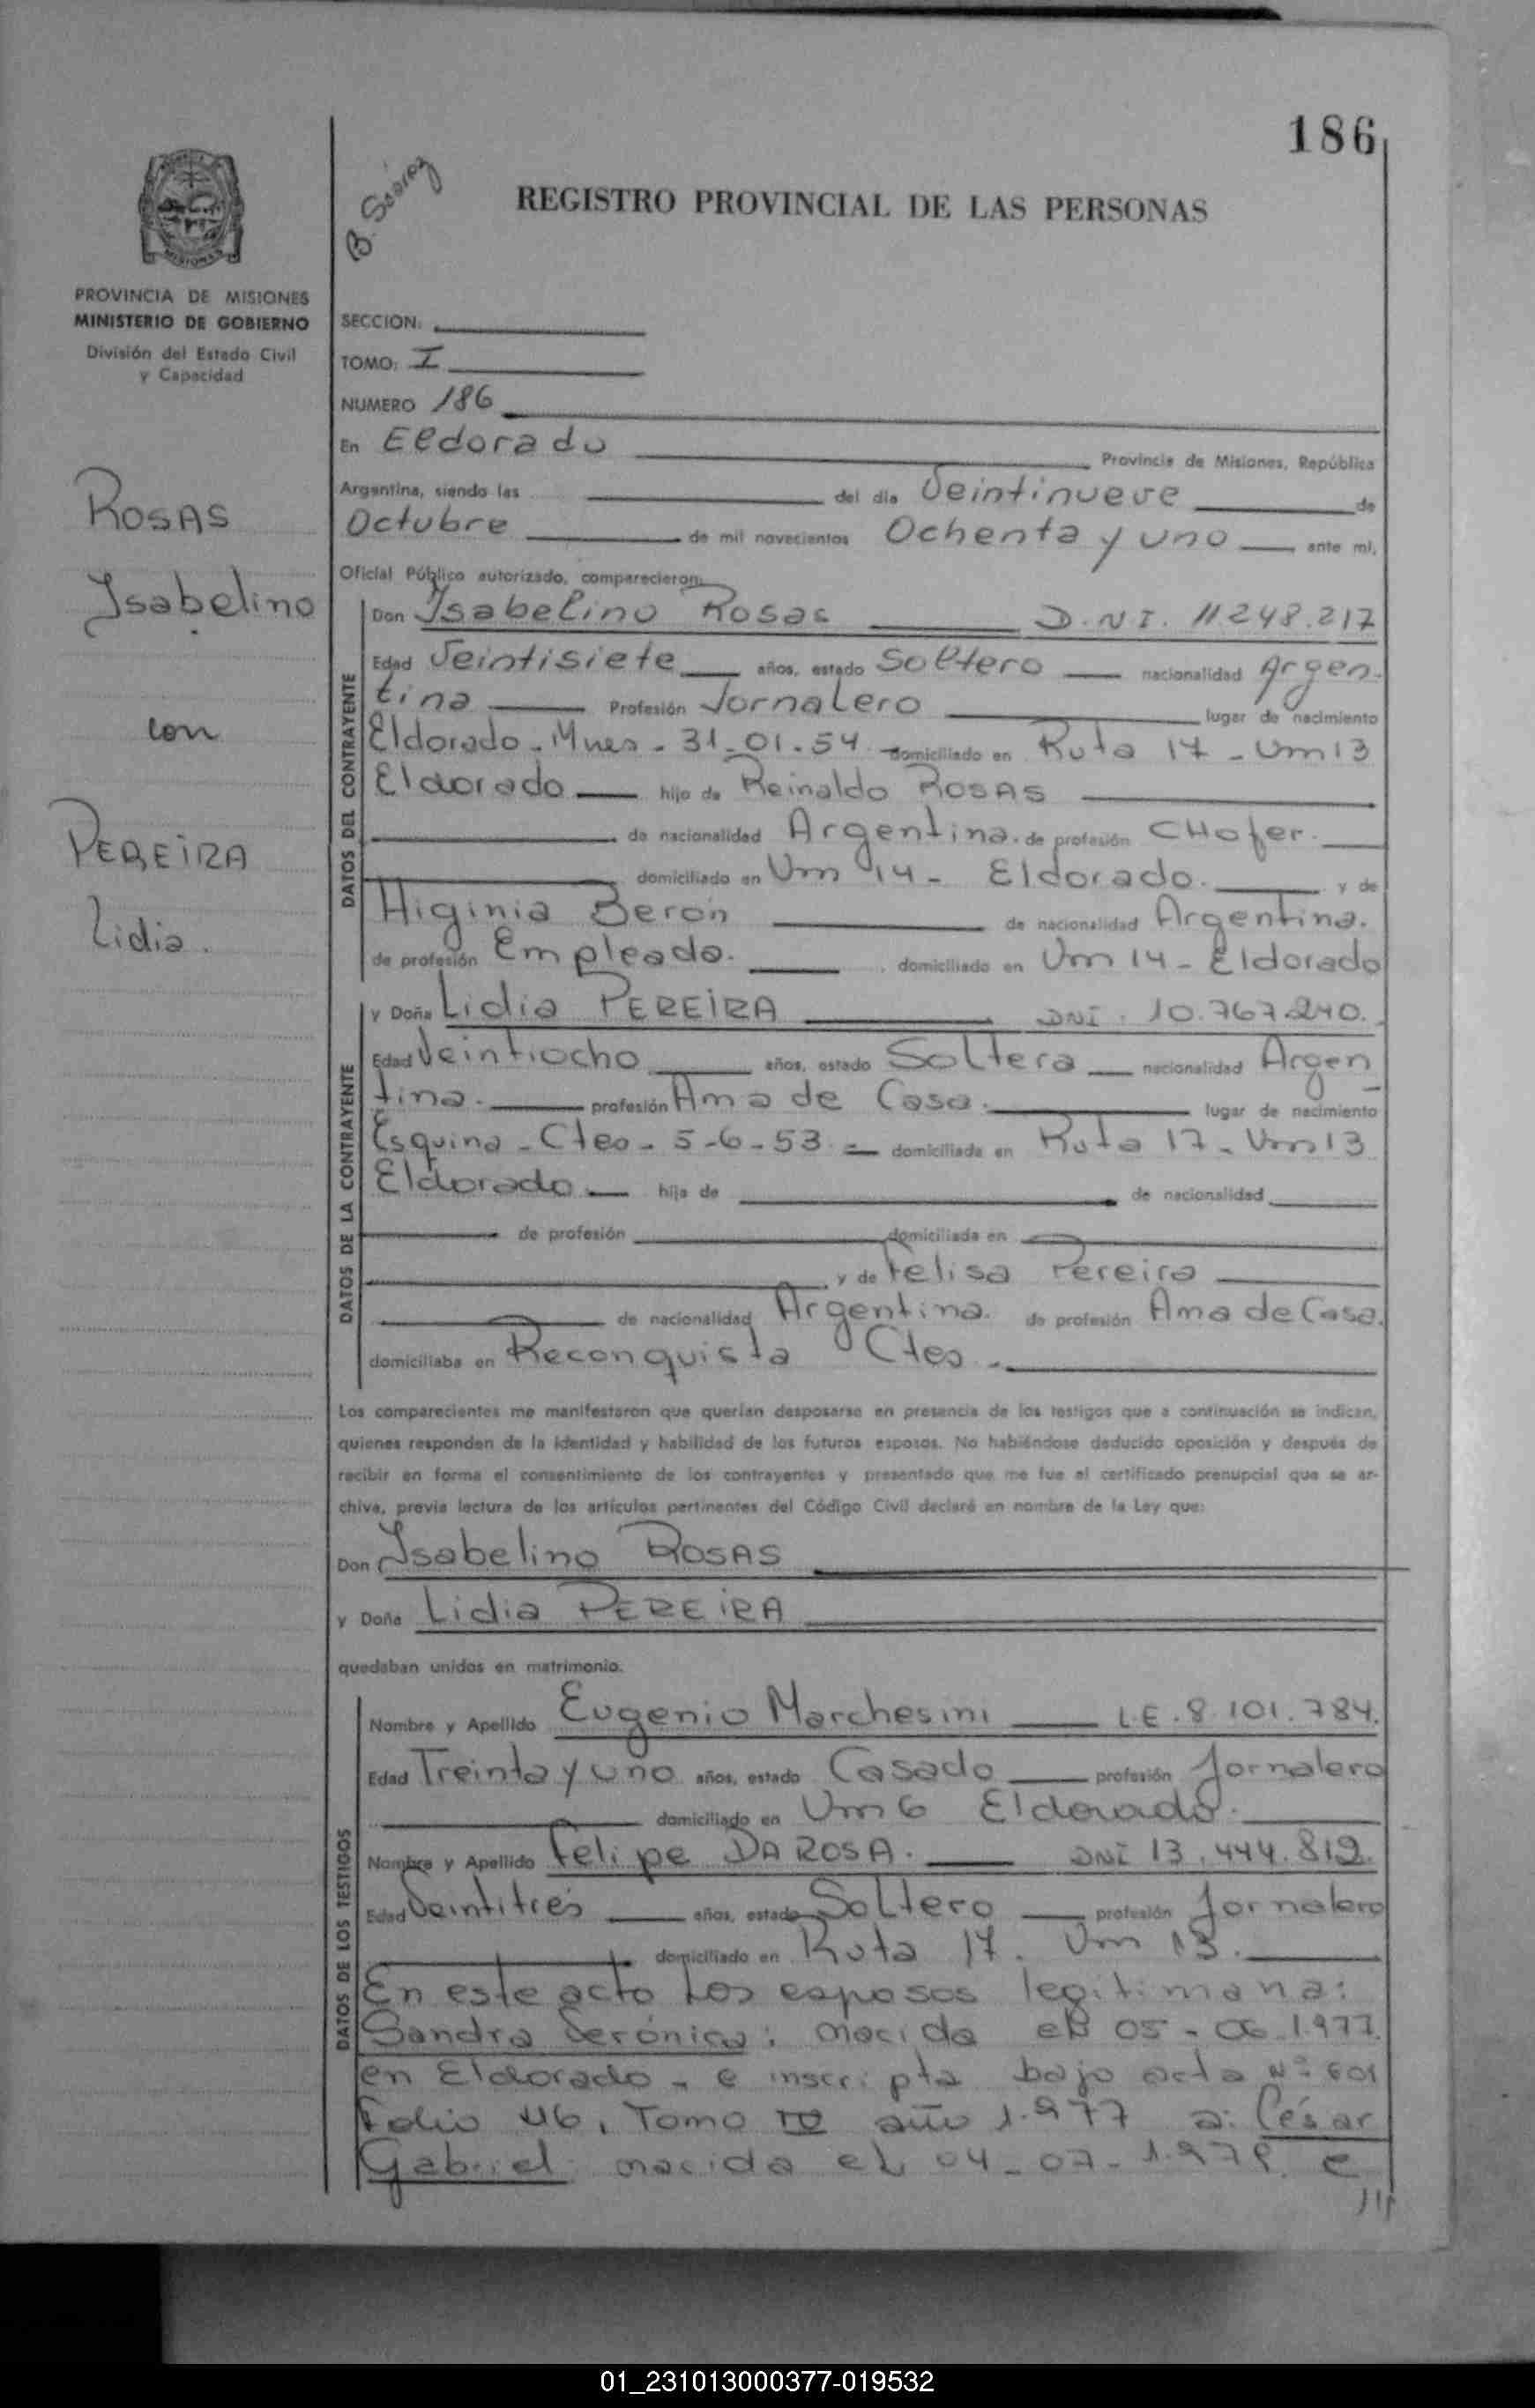 186
B. Suárez
REGISTRO PROVINCIAL DE LAS PERSONAS
PROVINCIA DE MISIONES
MINISTERIO DE GOBIERNO
División del Estado Civil
y Capacidad
ROSAS
Isabelino
con
PEREIRA
Lidia.
SECCION:
TOMO: I
NUMERO 186
En Eldorado Provincia de Misiones, República
Argentina, siendo las del día Veintinueve de
Octubre de mil novecientos Ochenta y uno ante mí,
Oficial Público autorizado, comparecieron:
DATOS DEL CONTRAYENTE
Don Isabelino Rosas D.N.I. 11248.217
Edad Veintisiete años, estado Soltero nacionalidad Argen-
tina Profesión Jornalero lugar de nacimiento
Eldorado - Mnes - 31-01-54. domiciliado en Ruta 17 - Vm13
Eldorado hijo de Reinaldo ROSAS
de nacionalidad Argentina. de profesión CHofer.
domiciliado en Vm 14 - Eldorado. y de
Higinia Berón de nacionalidad Argentina.
de profesión Empleada. domiciliado en Vm 14 - Eldorado
DATOS DE LA CONTRAYENTE
y Doña Lidia PEREIRA DNI. 10.767.240.
Edad Veintiocho años, estado Soltera nacionalidad Argen
tina. profesión Ama de Casa. lugar de nacimiento
Esquina - Ctes - 5-6-53 - domiciliada en Ruta 17 - Vm13
Eldorado hija de de nacionalidad
de profesión domiciliada en
y de Felisa Pereira
de nacionalidad Argentina. de profesión Ama de Casa.
domiciliaba en Reconquista Ctes.
Los comparecientes me manifestaron que querían desposarse en presencia de los testigos que a continuación se indican,
quienes responden de la identidad y habilidad de los futuros esposos. No habiéndose deducido oposición y después de
recibir en forma el consentimiento de los contrayentes y presentado que me fue el certificado prenupcial que se ar-
chiva, previa lectura de los artículos pertinentes del Código Civil declaré en nombre de la Ley que:
Don Isabelino ROSAS
y Doña Lidia PEREIRA
quedaban unidos en matrimonio.
DATOS DE LOS TESTIGOS
Nombre y Apellido Eugenio Marchesini L.E. 8.101.784.
Edad Treinta y uno años, estado Casado profesión Jornalero
domiciliado en Vm 6 Eldorado.
Nombre y Apellido Felipe DA ROSA. DNI 13.444.819.
Edad Veintitrés años, estado Soltero profesión Jornalero
domiciliado en Ruta 17. Vm 13.
En este acto los esposos legitiman a:
Sandra Verónica: nacida el 05-06-1.977.
en Eldorado - e inscripta bajo acta Nº 601
Folio 46, Tomo IV año 1.977 a: César
Gabriel: nacida el 04-07-1.979. e
///
01_231013000377-019532